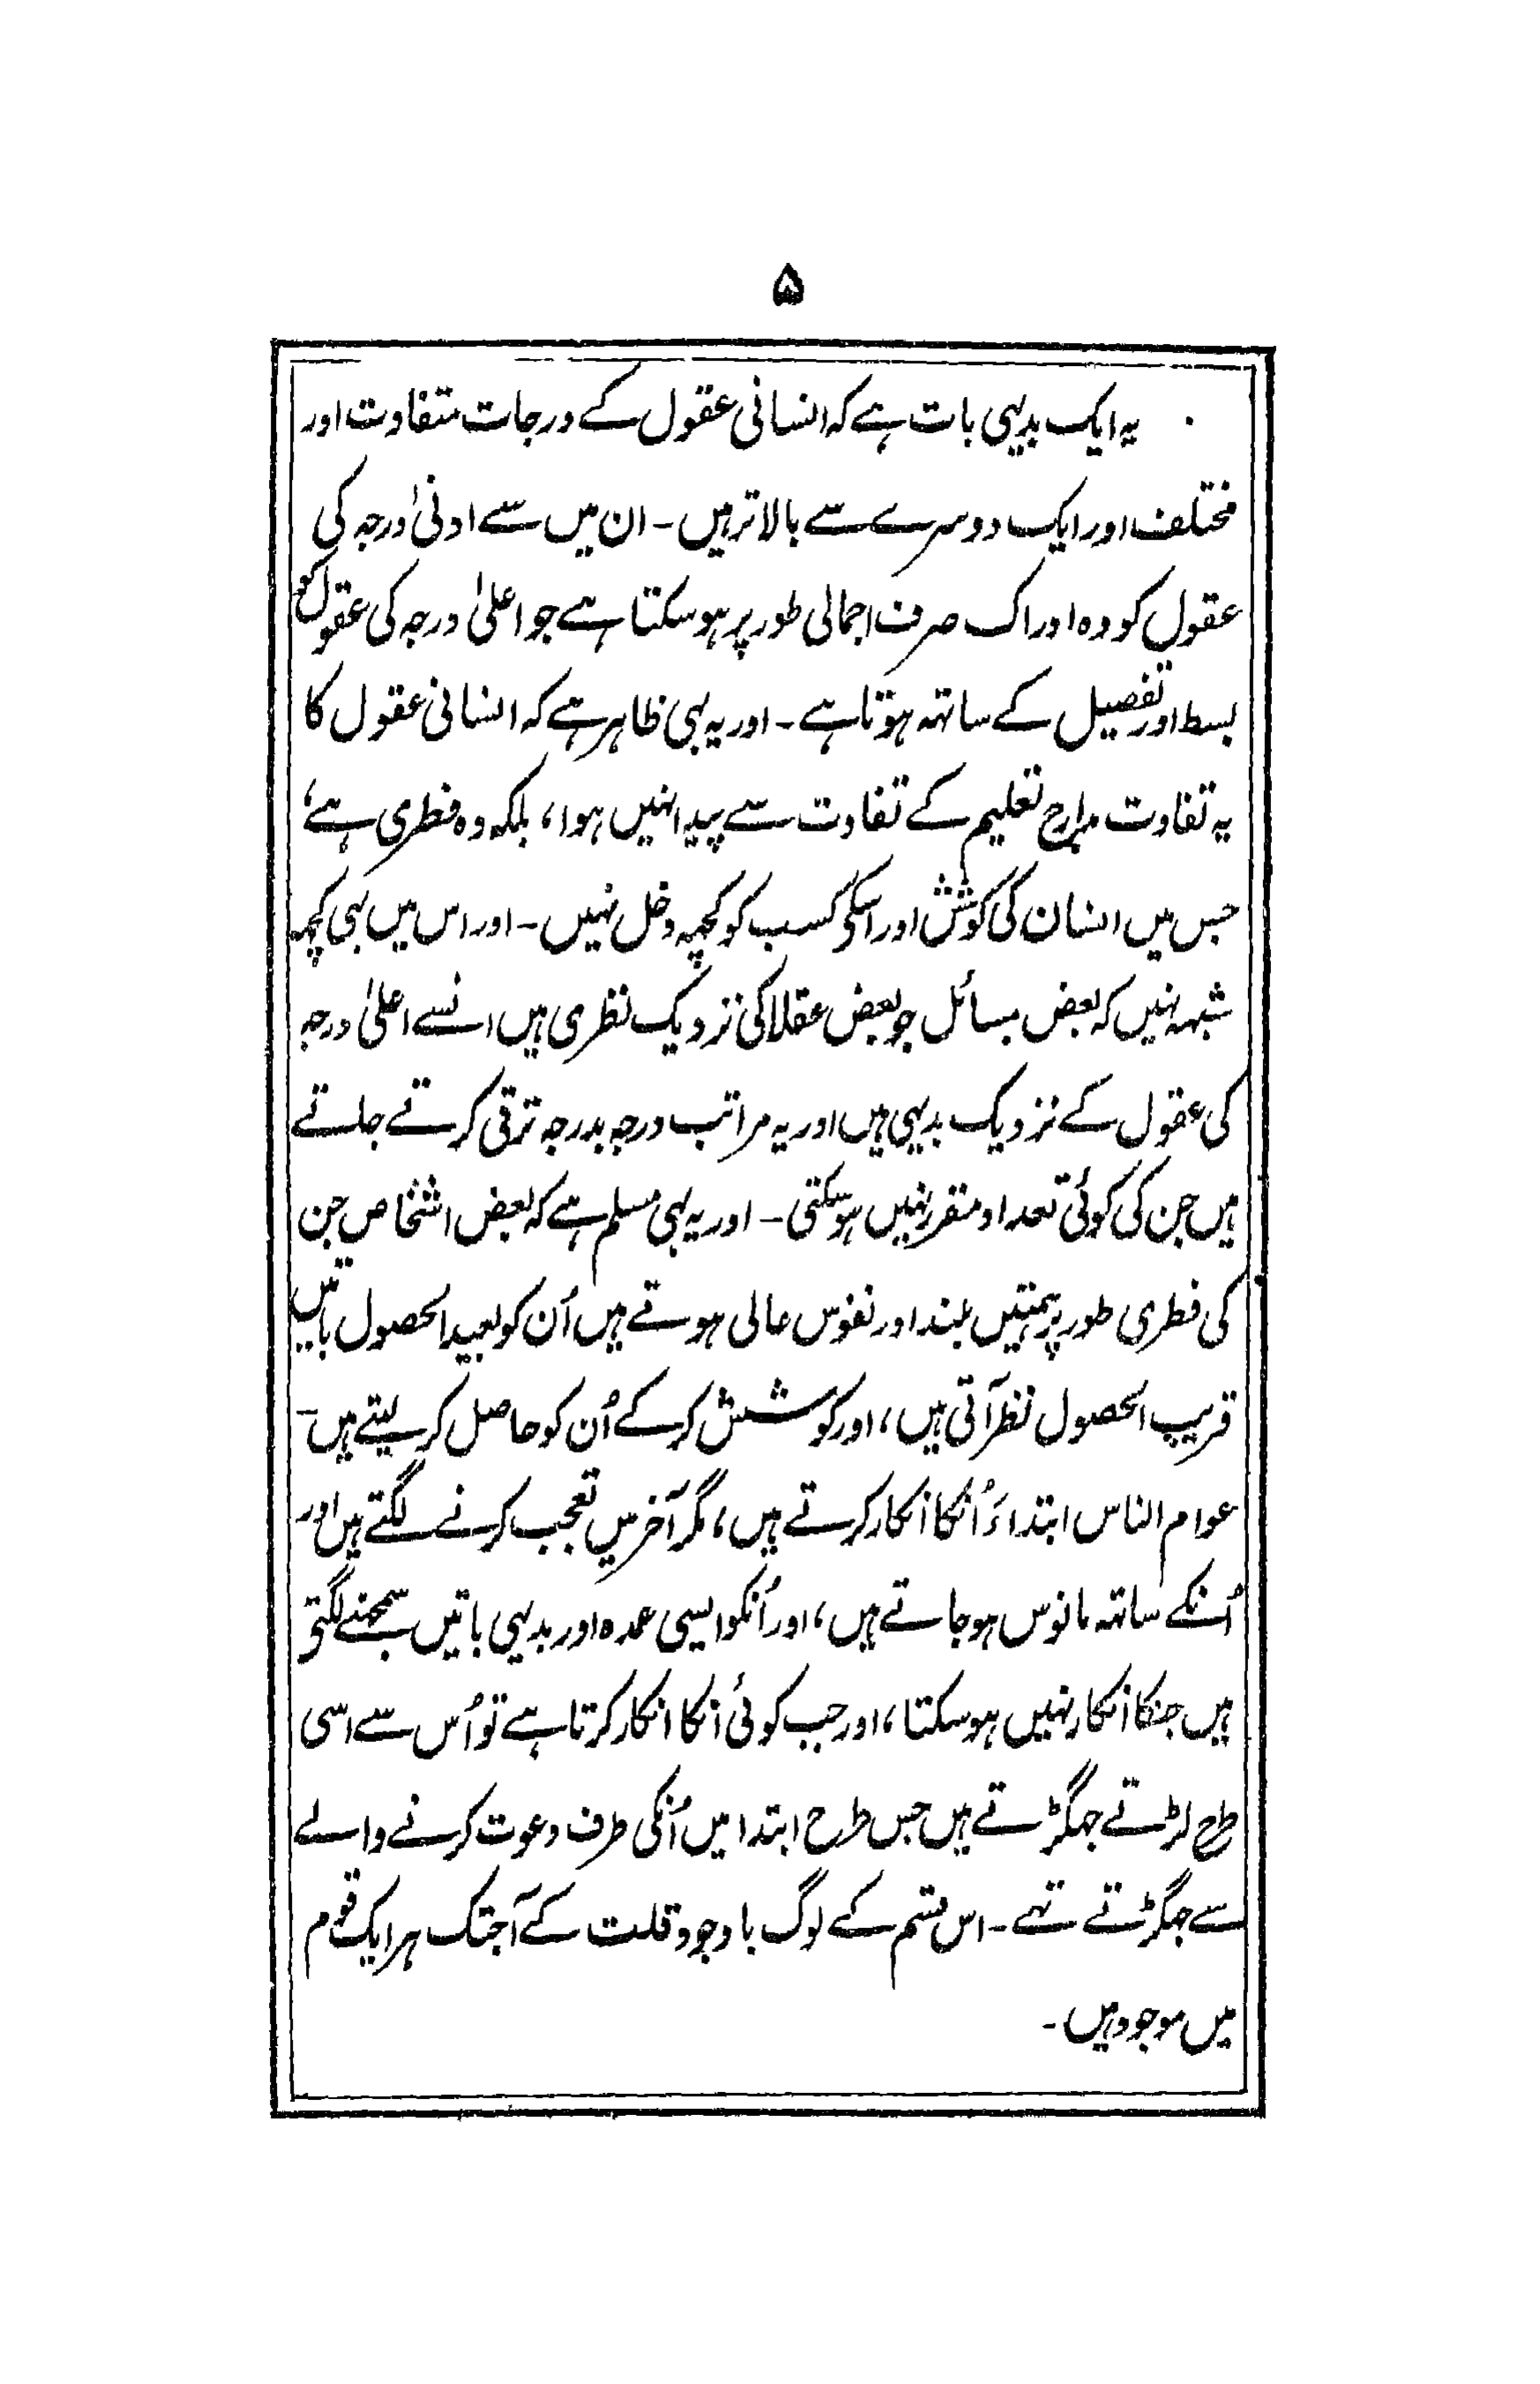 ۵
یہ ایک بدیہی بات ہے کہ انسانی عقول کے درجات متفاوت اور
مختلف اور ایک دوسرے سے بالاتر ہیں ۔ ان میں سے ادنیٰ درجہ کی
عقول کو وہ ادراک صرف اجمالی طور پر ہوسکتا ہے جو اعلیٰ درجہ کی عقول کو
بسط اور تفصیل کے ساتھہ ہوتا ہے ۔ اور یہ بہی ظاہر ہے کہ انسانی عقول کا
یہ تفاوت مدارج تعلیم کے تفاوت سے پیدا نہیں ہوا، بلکہ وہ فطری ہے،
جس میں انسان کی کوشش اور اسکی کسب کو کچہہ دخل نہیں ۔ اور اس میں بہی کچہہ
شبہہ نہیں کہ بعض مسائل جو بعض عقلا کی نزدیک نظری ہیں انسے اعلیٰ درجہ
کی عقول کے نزدیک بدیہی ہیں اور یہ مراتب درجہ بدرجہ ترقی کرتے جاتے
ہیں جن کی کوئی تعداد مقرر نہیں ہوسکتی ۔ اور یہ بہی مسلم ہے کہ بعض اشخاص جن
کی فطری طور پر ہمتیں بلند اور نفوس عالی ہوتے ہیں اُن کو بعید الحصول باتیں
قریب الحصول نظر آتی ہیں، اور کوشش کرکے اُن کو حاصل کرلیتے ہیں ۔
عوام الناس ابتداءً اُنکا انکار کرتے ہیں، مگر آخر میں تعجب کرنے لگتے ہیں اور
اُنکے ساتہہ مانوس ہوجاتے ہیں، اور اُنکو ایسی عمدہ اور بدیہی باتیں سمجہنے لگتی
ہیں جنکا انکار نہیں ہوسکتا، اور جب کوئی اُنکا انکار کرتا ہے تو اُس سے اسی
طرح لڑتے جہگڑتے ہیں جس طرح ابتدا میں اُنکی طرف دعوت کرنے والے
سے جہگڑتے تہے ۔ اس قسم کے لوگ باوجود قلت کے آجتک ہر ایک قوم
میں موجود ہیں ۔